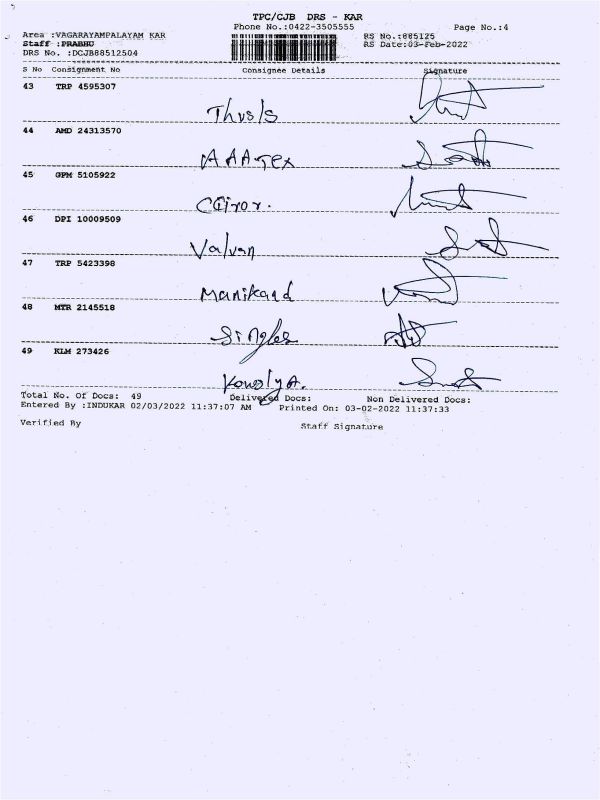 TPC/CJB DRS - KAR
Phone No.:0422-3505555 Page No.:4
Area :VAGARAYAMPALAYAM KAR RS No.:885125
Staff :PRABHU RS Date:03-Feb-2022
DRS No. :DCJB88512504
S No Consignment No Consignee Details Signature
43 TRP 4595307
Thusls
44 AMD 24313570
AAATex
45 GPM 5105922
46 DPI 10009509
Valvan
47 TRP 5423398
Manikand
48 MTR 2145518
Singles
49 KLM 273426
Total No. Of Docs: 49 Delivered Docs: Non Delivered Docs:
Entered By :INDUKAR 02/03/2022 11:37:07 AM Printed On: 03-02-2022 11:37:33
Verified By Staff Signature